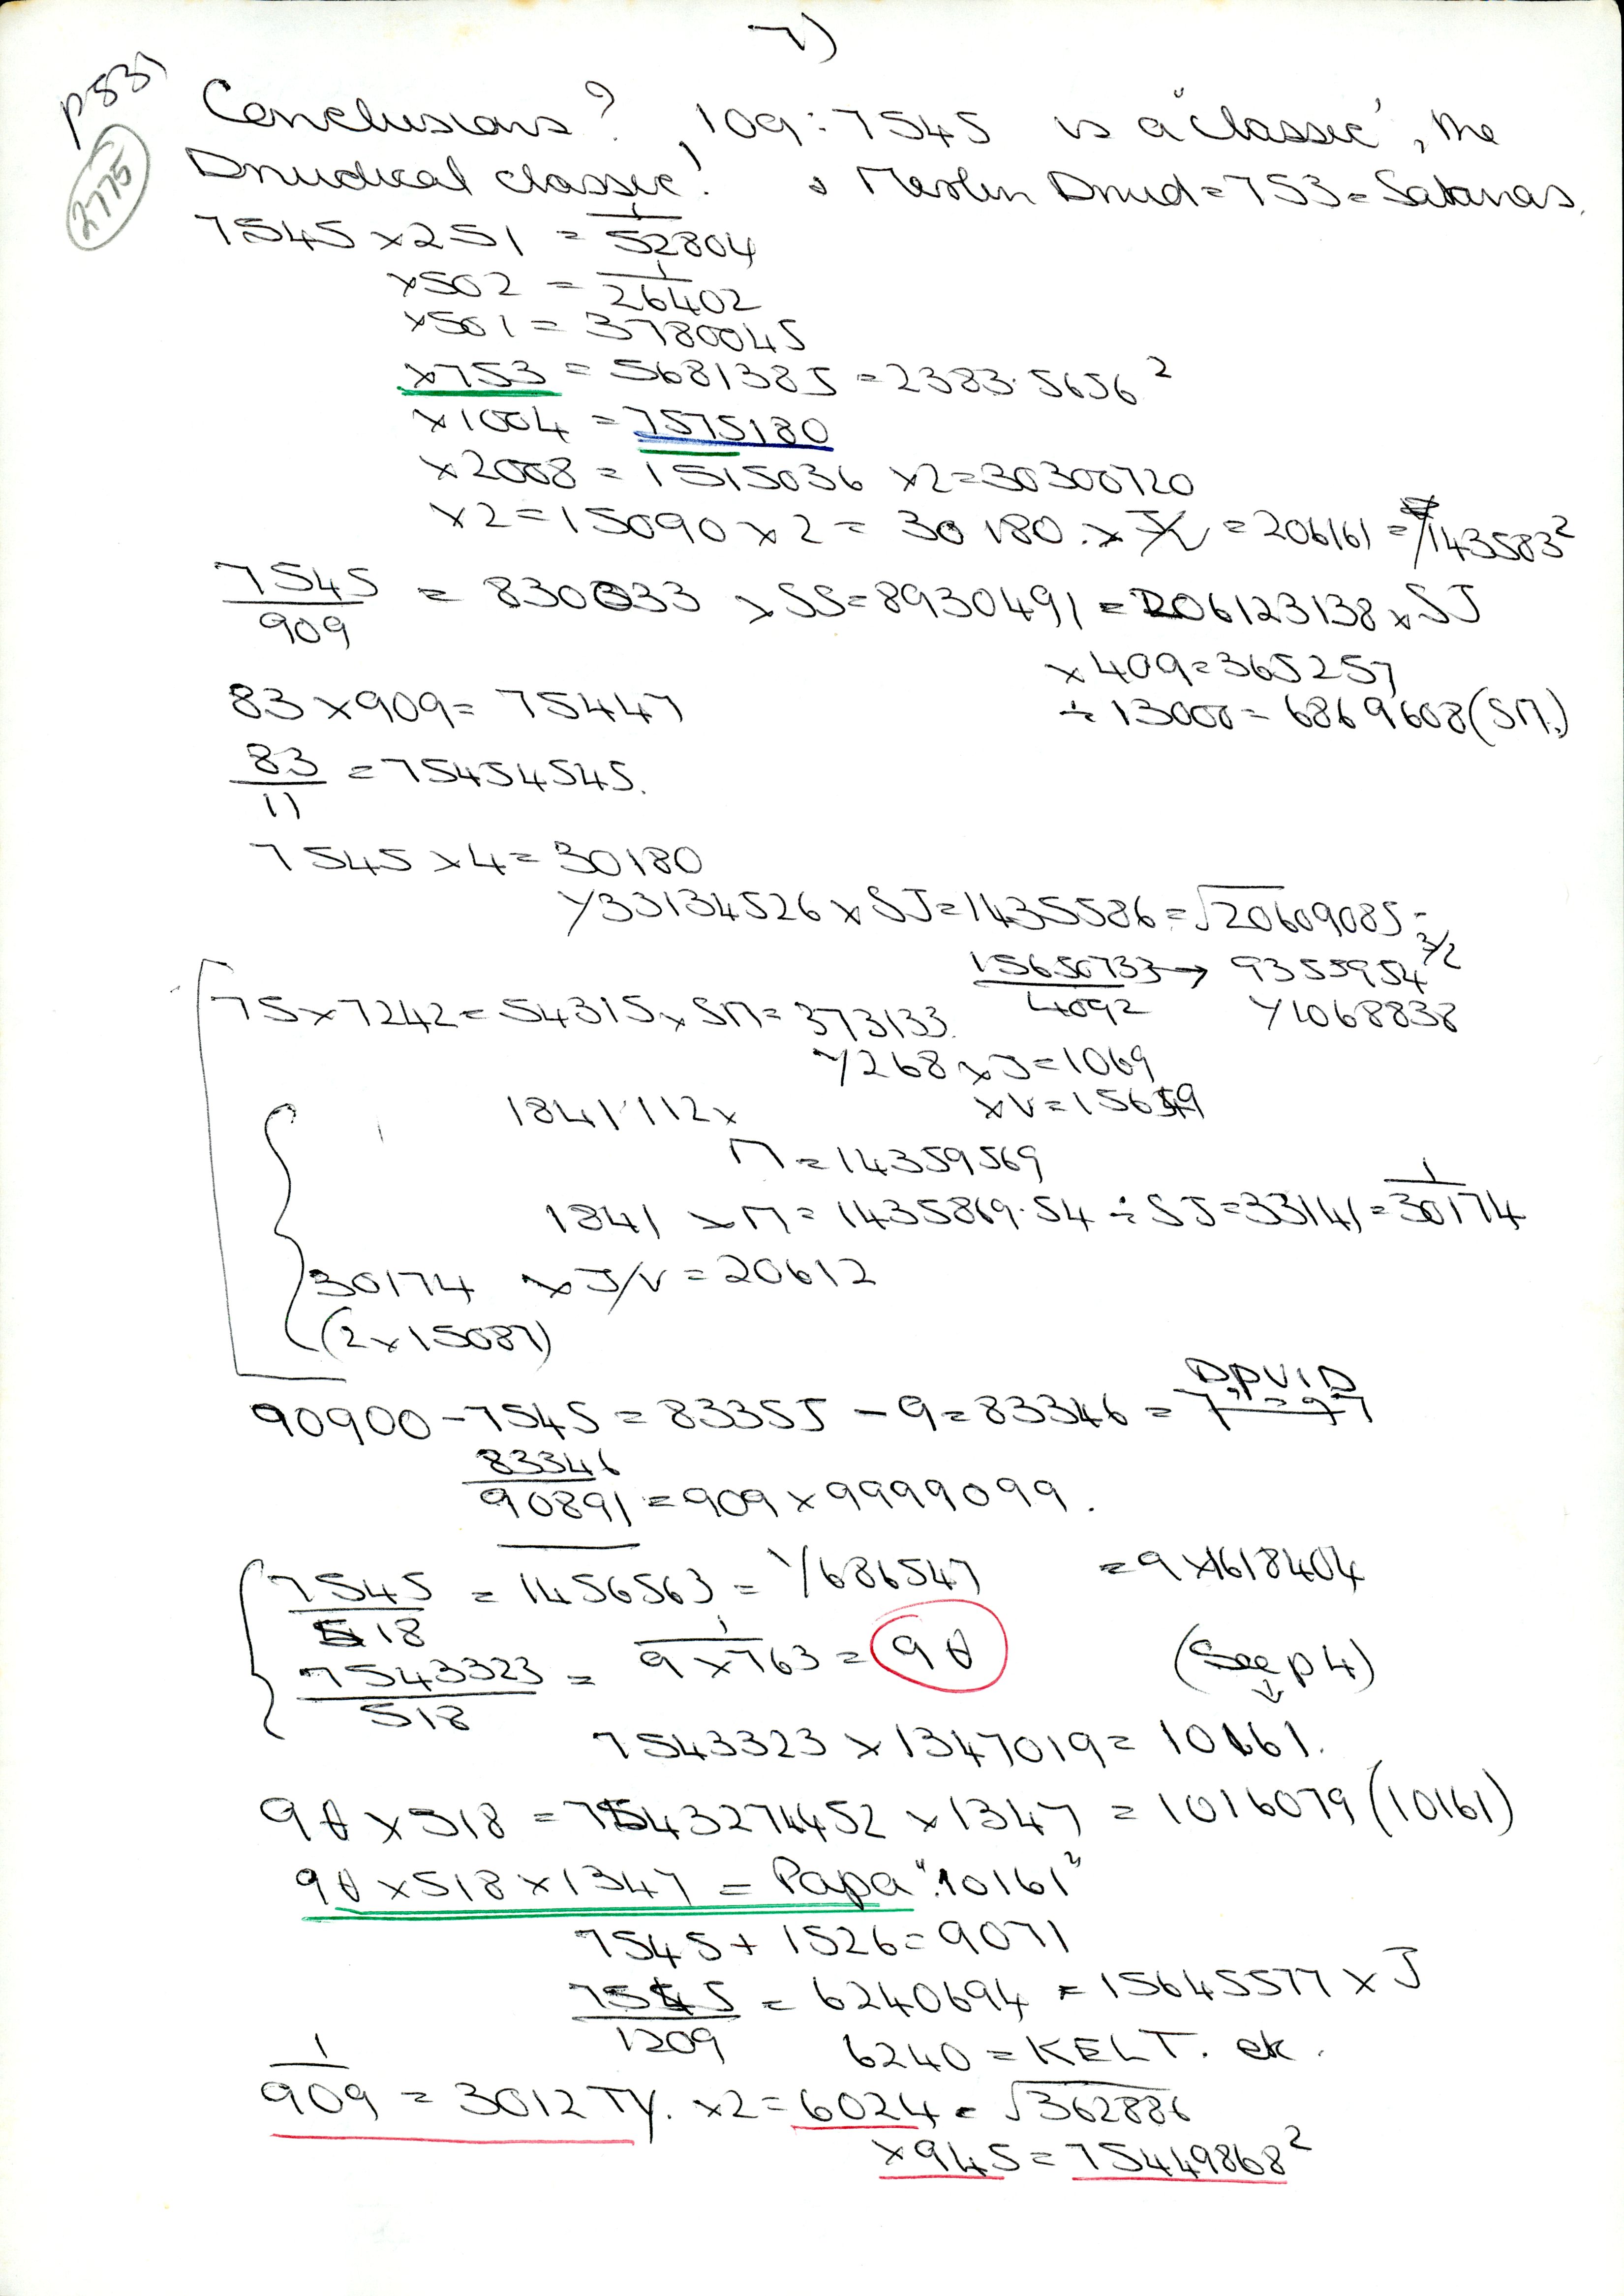 7)
p837
2775
Conclusions? , 109:7545 is a "classic', the
Druidical classic! & Merlin Druid=753=Satanas.
7545 x 251 = 1/52804
x502 = 1/26402
x501 = 3780045
x753 = 5681385 = 2383.5656²
x1004 = 7575180
x2008 = 1515036 x2=30300720
x2=15090 x 2 = 30180. x J/V = 206161 = 143583²
7545/909 = 830033 x SS=8930491 = 206123138 x SJ
x 409=365257
83 x 909= 75447 ÷ 13000 = 6869608 (SM.)
83/11 = 75454545.
7545 x 4 = 30180
Y33134526 x SJ=1435586=√20609085 =
15650733/4092 → 9355954 3/2
75x7242=54315 x SM= 373133. Y1068838
Y268 x J=1069
1841.112 x xV=15649
M = 14359569
1841 x M = 1435869.54 ÷ SJ=33141=1/30174
30174 x J/V = 20612
(2 x 15087)
DRUID
90900 - 7545 = 83355 - 9=83346 =
83346/90891 = 909 x 9999099.
7545/518 = 1456563 = Y686547 = 9 x1618404
7543323/518 = 1/9x763 = 9θ (See p4)
7543323 x 1347019= 10161.
9θ x 518 = 7543274452 x 1347 = 1016079 (10161)
9θ x 518 x 1347 = Papa "10161"
7545 + 1526=9071
7545/1209 = 6240694 = 15645577 x J
6240 = KELT. ek.
1/909 = 3012 TY. x2=6024 = √362886
x945 = 75449868²